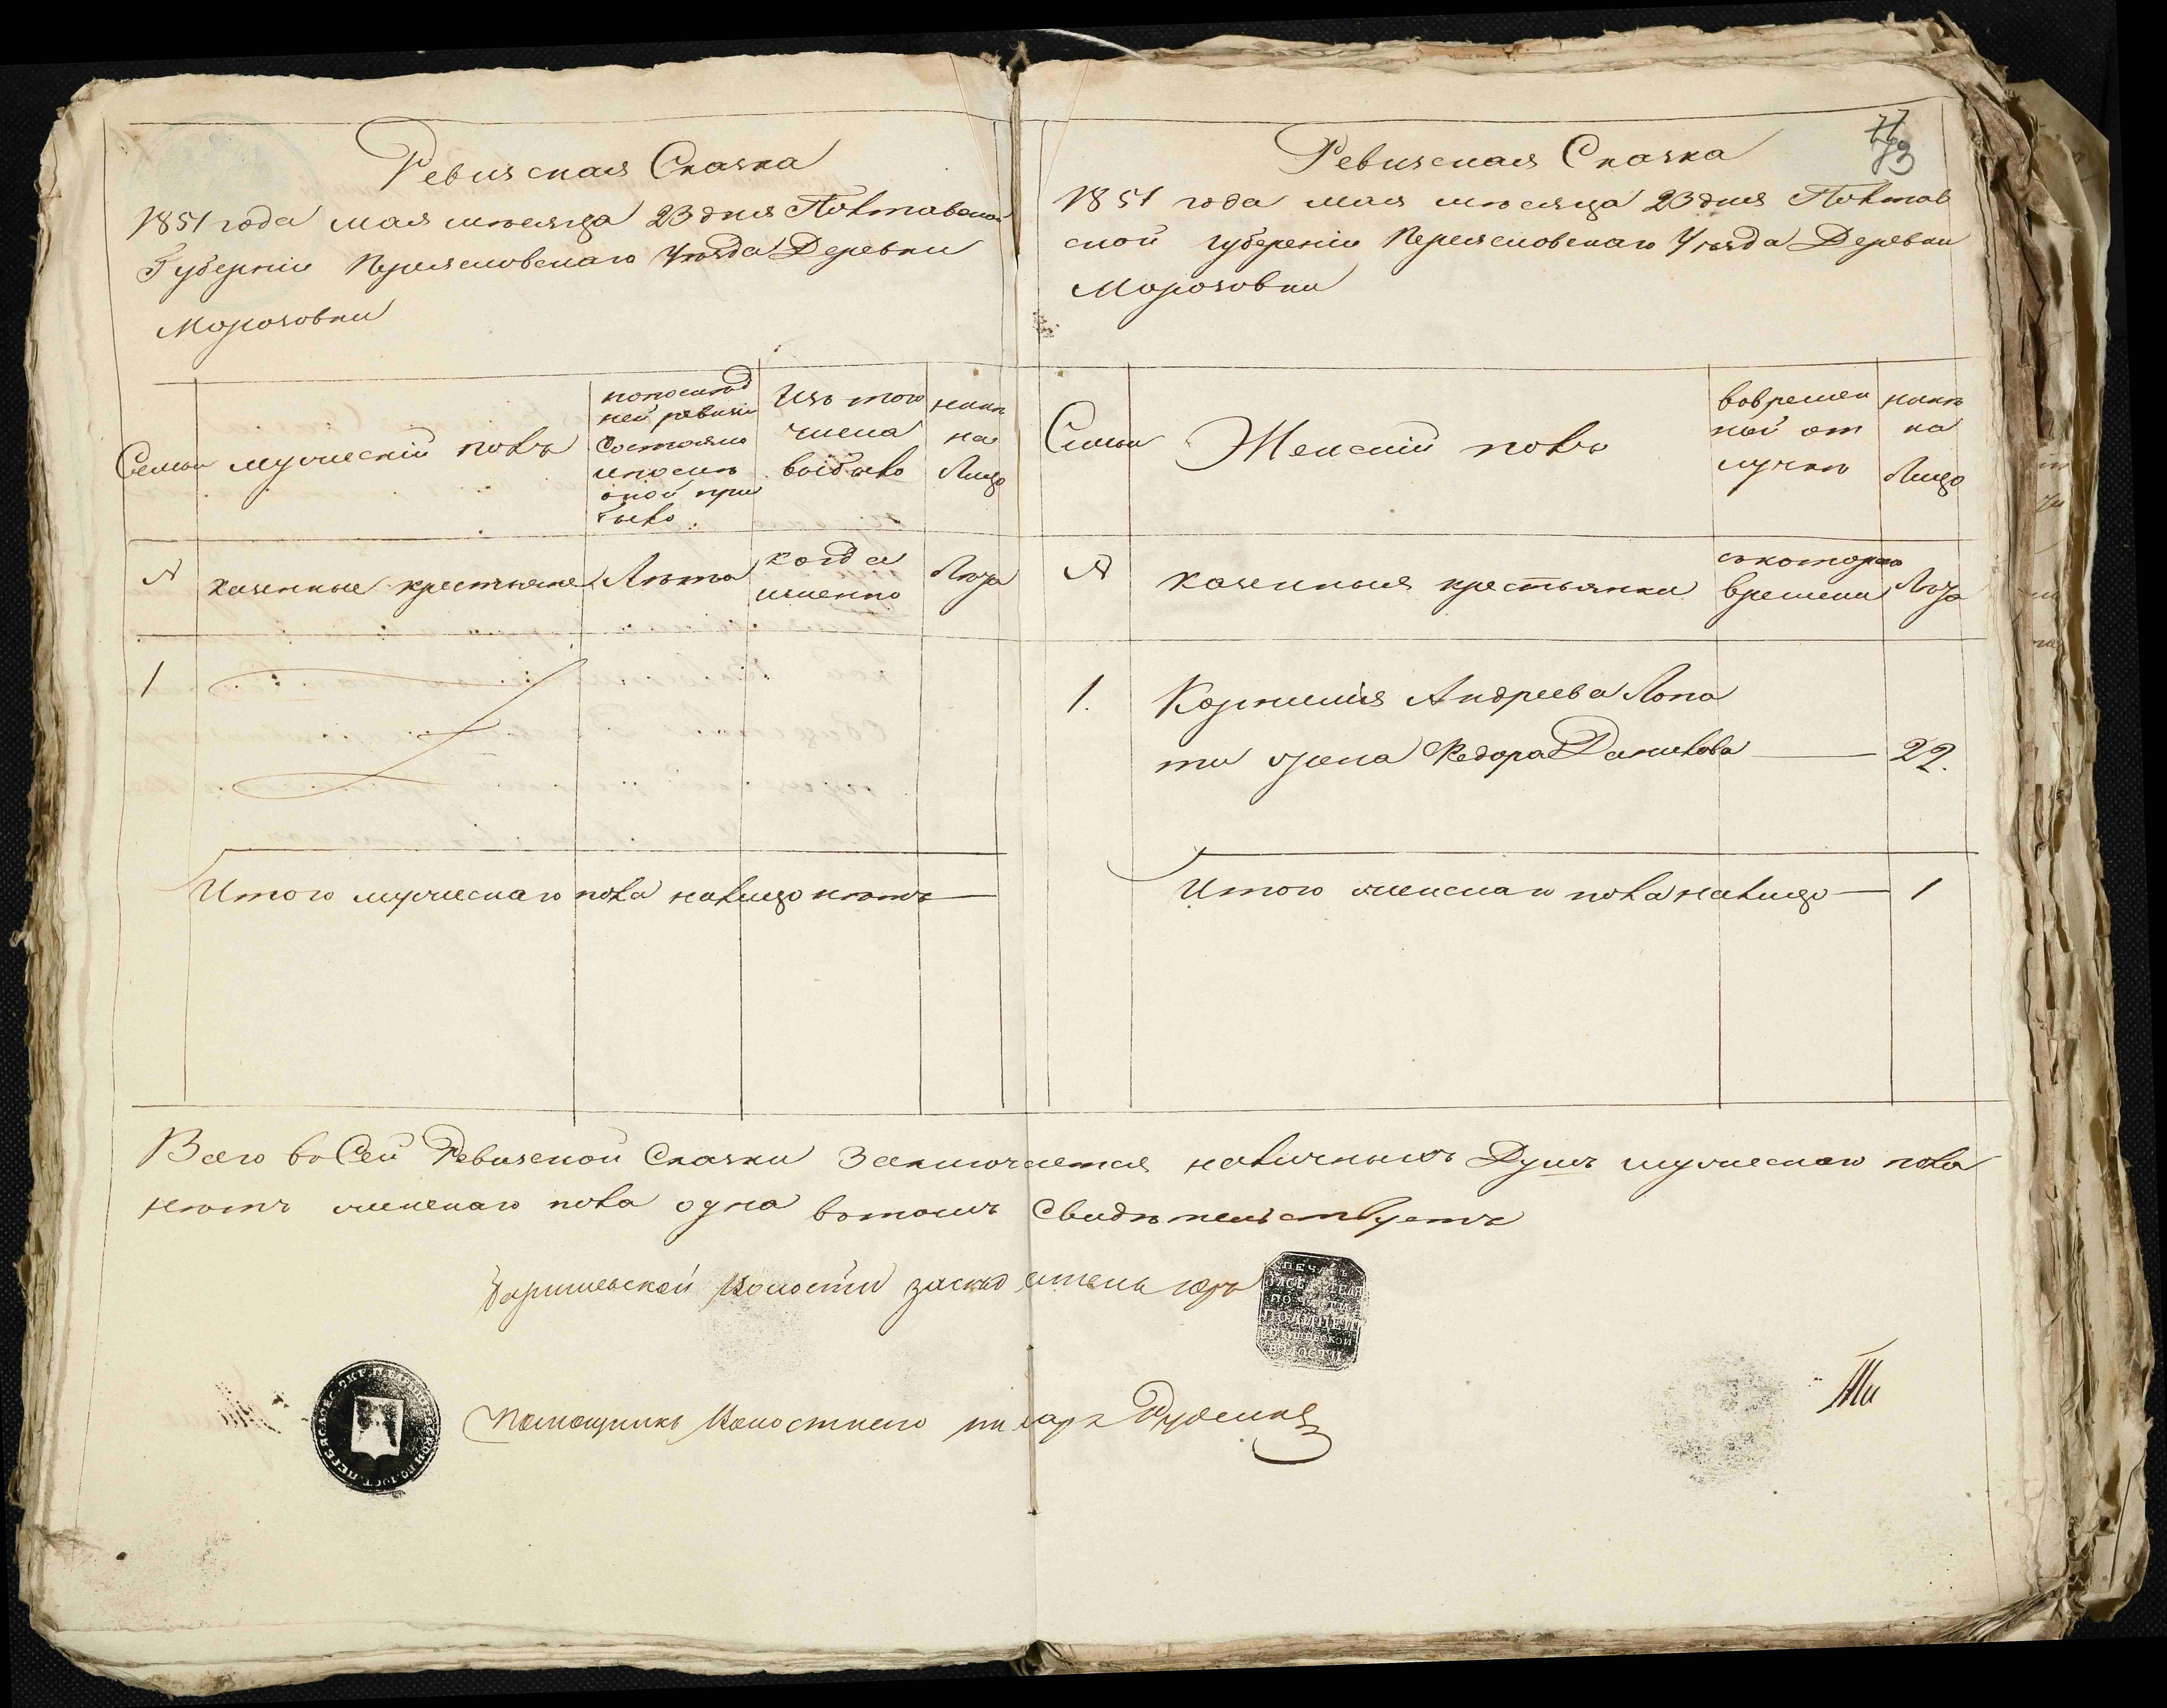 Ревизская Сказка
1851 года мая месяца 23 дня Полтавской
Губерніи Переясловскаго Уѣзда Деревни
Морозовки
Семьи
мужескій полъ
по послѣд
ней ревизіи
Состояло
и послѣ
оной при
было
Изъ того
числа
выбыло
нынѣ
на
Лицо
№
казенные крестьяне
Лѣта
когда
именно
Лѣта
1
Итого мужескаго пола налицо нѣтъ
77
73
Ревизская Сказка
1851 года мая мѣсяца 23 дня Полтав
ской губерніи Переясловскаго Уѣзда Деревни
Морозовки
Семьи
Женскій полъ
во времен
ной от
лучкѣ
нынѣ
на
Лицо
№
казенныя крестьянки
съ котораго
времени
Лѣта
1. Андреева Лопа
ти жена Федора Данилова 22.
Итого женскаго пола налицо 1
Всего въ Сей Ревизской Сказки Заключается наличныхъ Душъ мужескаго пола
нѣтъ женскаго пола одна въ томъ Свидѣтельствуетъ
Барышевской Волости
ПЕЧАТЬ
ПО ЧАСТИ
ПОЛИЦЕЙ
БАРЫШЕВСКОЙ
ВОЛОСТИ
Помощникъ Волостнаго писаря